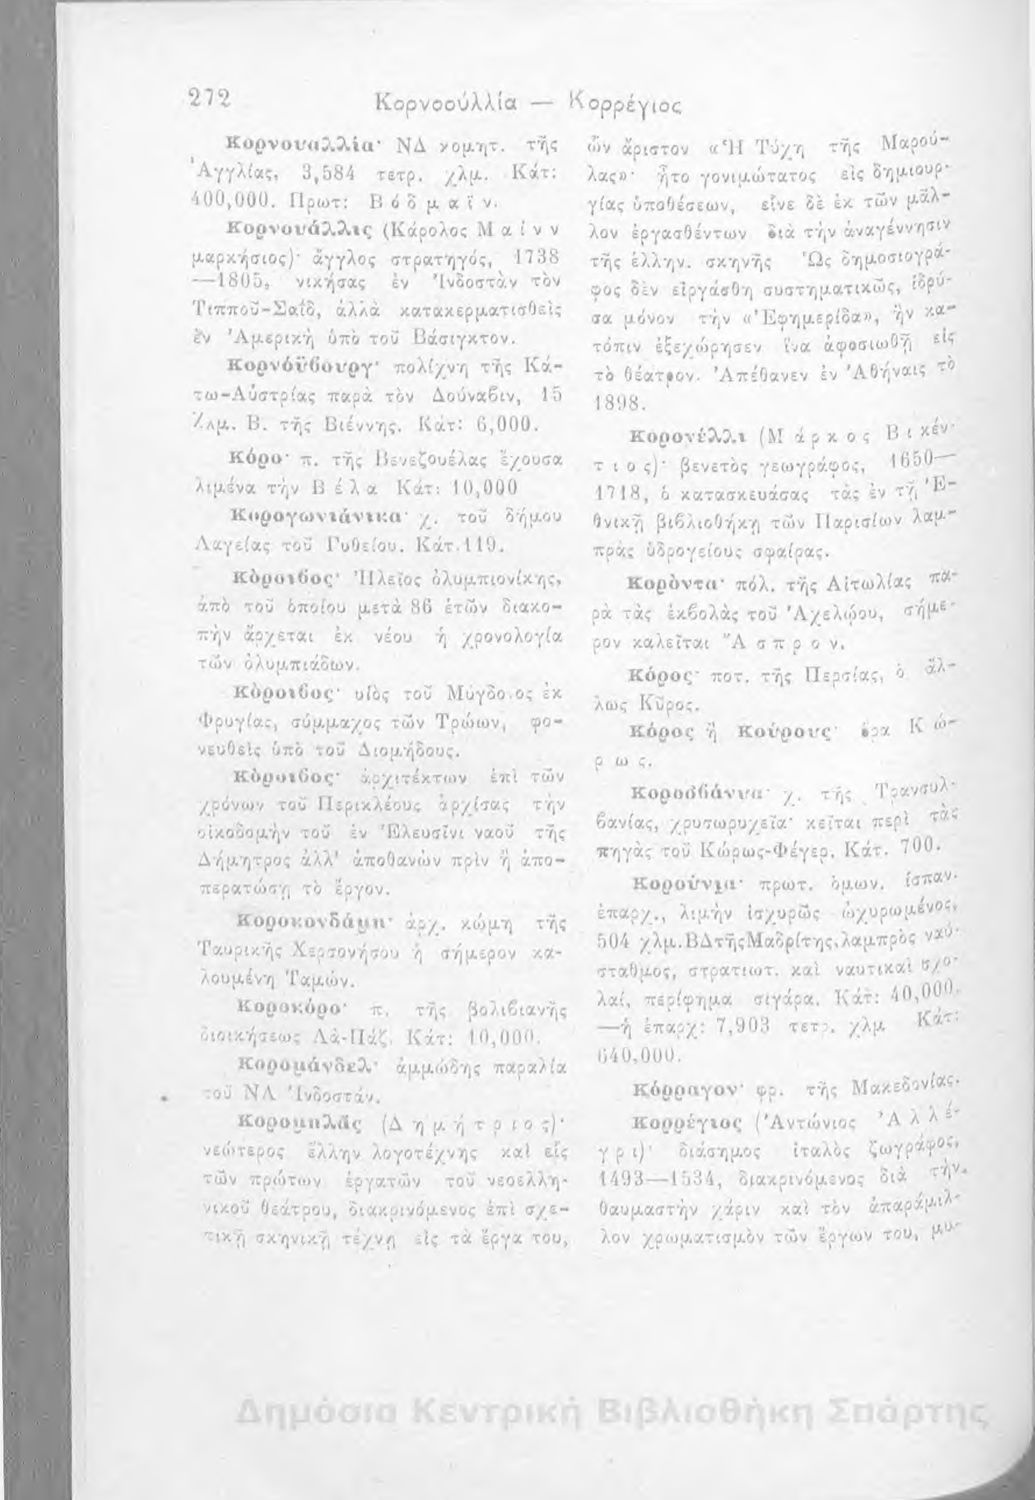 272
Κορνοούλλία — Κορρέγιος
Κορνουαλλία· ΝΔ κομητ. τῆς
Ἀγγλίας, 3,584 τετρ. χλμ. Κάτ:
400,000. Πρωτ: Βόδμαϊν.
Κορνουάλλις (Κάρολος Μαίνν
μαρκήσιος)· ἄγγλος στρατηγός, 1738
—1805, νικήσας ἐν Ἰνδοστὰν τὸν
Τιπποῦ-Σαΐδ, ἀλλὰ κατακερματισθεὶς
ἐν Ἀμερικῇ ὑπὸ τοῦ Βάσιγκτον.
Κορνόϋβουργ· πολίχνη τῆς Κά-
τω-Αὐστρίας παρὰ τὸν Δούναβιν, 15
χλμ. Β. τῆς Βιέννης. Κάτ: 6,000.
Κόρο· π. τῆς Βενεζουέλας ἔχουσα
λιμένα τὴν Βέλα Κάτ: 10,000
Κορογωνιάνικα· χ. τοῦ δήμου
Λαγείας τοῦ Γυθείου. Κάτ. 119.
Κόροιβος· Ἠλεῖος ὀλυμπιονίκης,
ἀπὸ τοῦ ὁποίου μετὰ 86 ἐτῶν διακο-
πὴν ἄρχεται ἐκ νέου ἡ χρονολογία
τῶν ὀλυμπιάδων.
Κόροιβος· υἱὸς τοῦ Μύγδονος ἐκ
Φρυγίας, σύμμαχος τῶν Τρώων, φο-
νευθεὶς ὑπὸ τοῦ Διομήδους.
Κόροιβος· ἀρχιτέκτων ἐπὶ τῶν
χρόνων τοῦ Περικλέους ἀρχίσας τὴν
οἰκοδομὴν τοῦ ἐν Ἐλευσῖνι ναοῦ τῆς
Δήμητρος ἀλλ' ἀποθανὼν πρὶν ἢ ἀπο-
περατώσῃ τὸ ἔργον.
Κοροκονδάμη· ἀρχ. κώμη τῆς
Ταυρικῆς Χερσονήσου ἡ σήμερον κα-
λουμένη Ταμών.
Κοροκόρο· π. τῆς βολιβιανῆς
διοικήσεως Λὰ-Πάζ. Κάτ: 10,000.
Κορομάνδελ· ἀμμώδης παραλία
τοῦ ΝΑ Ἰνδοστάν.
Κορομηλᾶς (Δημήτριος)·
νεώτερος ἕλλην λογοτέχνης καὶ εἷς
τῶν πρώτων ἐργατῶν τοῦ νεοελλη-
νικοῦ θεάτρου, διακρινόμενος ἐπὶ σχε-
τικῇ σκηνικῇ τέχνῃ εἰς τὰ ἔργα του,
ὧν ἄριστον «Ἡ Τύχη τῆς Μαρού-
λας»· ἦτο γονιμώτατος εἰς δημιουρ-
γίας ὑποθέσεων, εἶνε δὲ ἐκ τῶν μᾶλ-
λον ἐργασθέντων διὰ τὴν ἀναγέννησιν
τῆς ἑλλην. σκηνῆς Ὡς δημοσιογρά-
φος δὲν εἰργάσθη συστηματικῶς, ἱδρύ-
σα μόνον τὴν «Ἐφημερίδα», ἣν κα-
τόπιν ἐξεχώρησεν ἵνα ἀφοσιωθῇ εἰς
τὸ θέατρον. Ἀπέθανεν ἐν Ἀθήναις τὸ
1898.
Κορονέλλι (Μάρκος Βικέν-
τιος)· βενετὸς γεωγράφος, 1650—
1718, ὁ κατασκευάσας τὰς ἐν τῇ Ἐ-
θνικῇ βιβλιοθήκῃ τῶν Παρισίων λαμ-
πρὰς ὑδρογείους σφαίρας.
Κορόντα· πόλ. τῆς Αἰτωλίας πα-
ρὰ τὰς ἐκβολὰς τοῦ Ἀχελῴου, σήμε-
ρον καλεῖται Ἄσπρον.
Κόρος· ποτ. τῆς Περσίας, ὁ ἄλ-
λως Κῦρος.
Κόρος ἢ Κούρους· ὅρα Κώ-
ρως.
Κοροσβάννα· χ. τῆς Τρανσυλ-
βανίας, χρυσωρυχεῖα· κεῖται περὶ τὰς
πηγὰς τοῦ Κώρως-Φέγερ. Κάτ. 700.
Κορούνια· πρωτ. ὁμων. ἱσπαν.
ἐπαρχ., λιμὴν ἰσχυρῶς ὠχυρωμένος,
504 χλμ. ΒΔ τῆς Μαδρίτης, λαμπρὸς ναύ-
σταθμος, στρατιωτ. καὶ ναυτικαὶ σχο-
λαί, περίφημα σιγάρα. Κάτ: 40,000.
—ἡ ἐπαρχ: 7,903 τετρ. χλμ Κάτ:
640,000.
Κόρραγον· φρ. τῆς Μακεδονίας.
Κορρέγιος (Ἀντώνιος Ἀλλέ-
γρι)· διάσημος ἰταλὸς ζωγράφος,
1493—1534, διακρινόμενος διὰ τὴν
θαυμαστὴν χάριν καὶ τὸν ἀπαράμιλ-
λον χρωματισμὸν τῶν ἔργων του, μυ-
Δημόσια Κεντρική Βιβλιοθήκη Σπάρτης